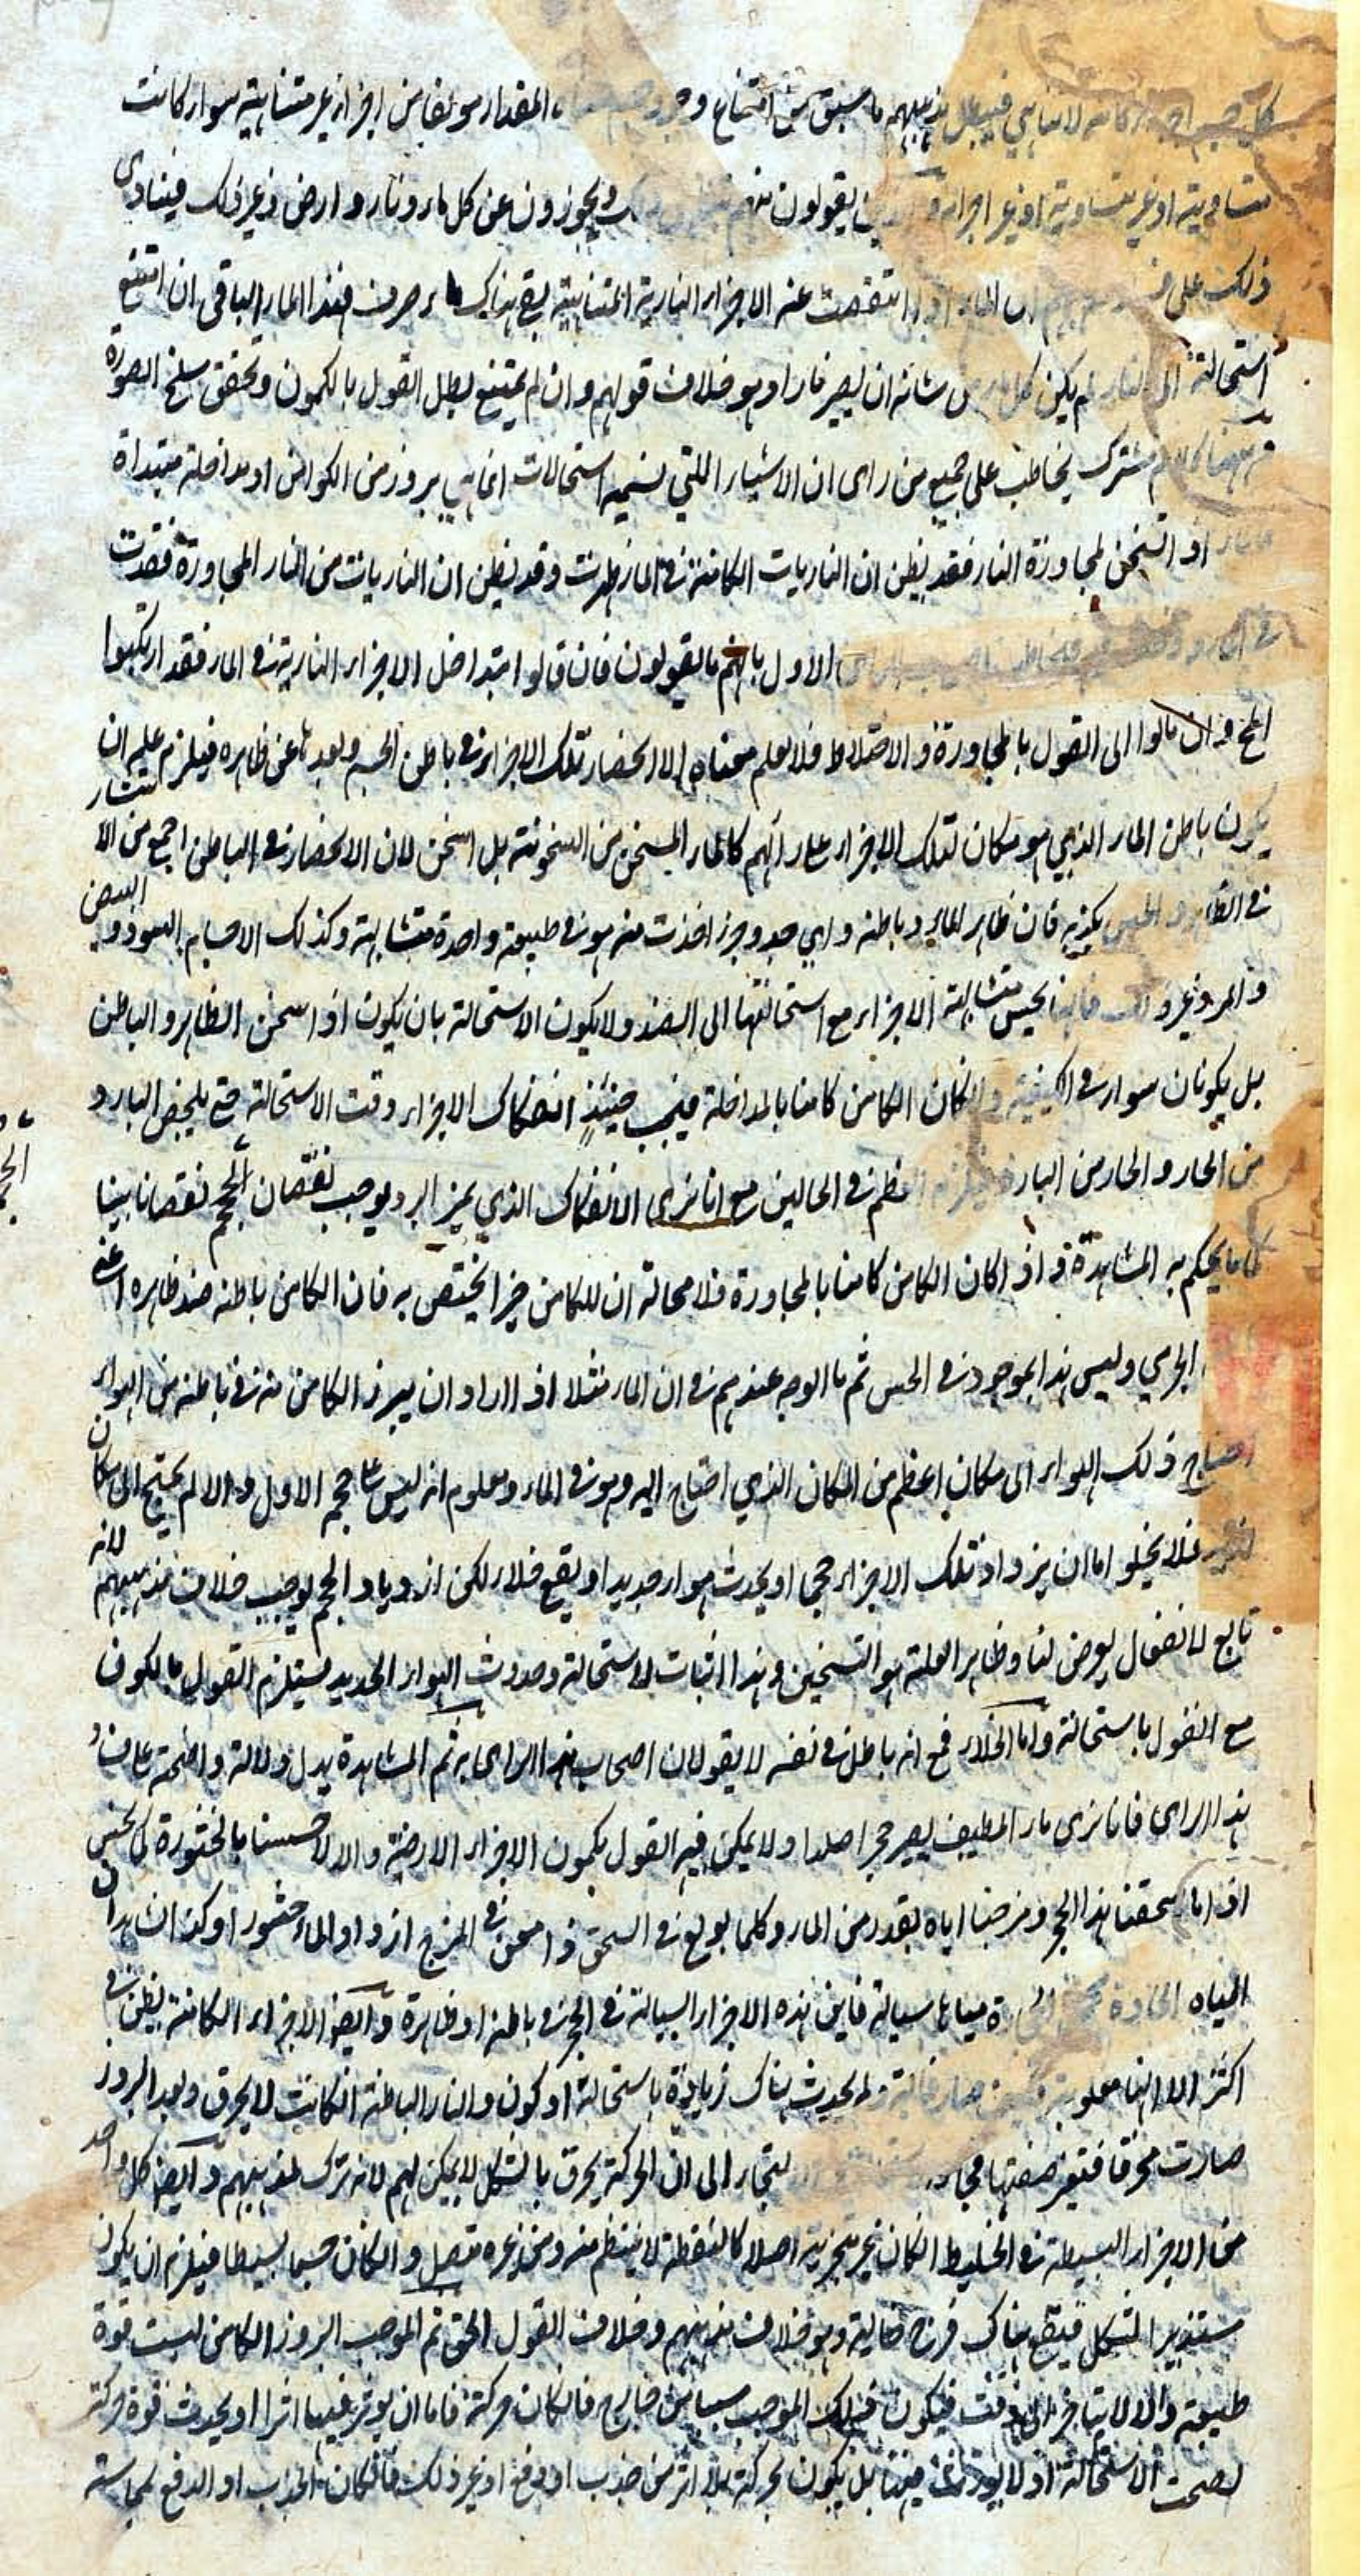 كل جسم لا تناهي فيبطل مذهبهم ما سبق من امتناع وجود المقدار مؤلفا من اجزاء غير متناهية سواء كانت
متساوية او غير متساوية او غير اجزاء يقولون منهم ويجوزون عن كل ماء ونار وارض وغير ذلك فينادى
ذلك على ان الماء اذا انتقصت عنه الاجزاء النارية المتناهية بقي هناك ماء صرف فهذا الماء الباقي ان امتنع
استحالته الى النار لم يكن كل ماء من شانه ان يصير نارا وهو خلاف قولهم وان لم يمتنع بطل القول بالكمون وتحقق سلخ الصورة
ههنا كلام مشترك يخاطب على جميع من راى ان الاشياء اللتي نسميه استحالات انما هي بروز من الكوامن او مداخلة مبتداة
اذا تسخن لمجاورة النار فقد يظن ان الناريات الكامنة في الماء ظهرت وقد يظن ان الناريات من النار المجاورة نفذت
في الماء الاول بانهم ما يقولون فان قالوا بتداخل الاجزاء النارية في الماء فقد ارتكبوا
المح وان مالوا الى القول بالمجاورة والاختلاط فلا يعلم معناه الا انحصار تلك الاجزاء في باطن الجسم وبعدها عن ظاهره فيلزم عليهم ان
يكون باطن الماء الذي هو مكان لتلك الاجزاء على رائهم كالماء المسخن من السخونة بل اسخن لان الانحصار في الباطن اجمع من الانتشار
في الظاهر والحس يكذبه فان ظاهر الماء وباطنه واي حد وجزء اخذت منه هو في طبيعة واحدة متشابهة وكذلك الاجسام السود والبيض
والمر وغير ذلك فانها تحس متشابهة الاجزاء مع استحالتها الى الضد ولا يكون الاستحالة بان يكون اذا سخن الظاهر والباطن
بل يكونان سواء في الكيفية وان كان الكامن كامنا بالمداخلة فيجب حينئذ انفكاك الاجزاء وقت الاستحالة حتى يلخص البارد
من الحار والحار من البارد في الحالين مع انا نرى الانفكاك الذي يميز البرد يوجب نقصان الحجم نقصانا بينا
كما يحكم به المشاهدة واذا كان الكامن كامنا بالمجاورة فلا محالة ان للكامن حيزا يختص به فان الكامن باطنه ضد ظاهره اعني
الجرمي وليس هذا بموجود في الحس ثم ما الوجه عندهم في ان الماء مثلا اذا اراد ان يبرز الكامن منه في باطنه من الهواء
احتاج ذلك الهواء الى مكان اعظم من المكان الذي احتاج اليه وهو في الماء ومعلوم انه ليس على حجمه الاول والا لم يحتج الى مكان
فلا يخلو اما ان يزداد تلك الاجزاء حجما او يحدث هواء جديد او يقع خلاء لكن ازدياد الحجم يوجب خلاف مذهبهم لانه
تابع لانفعال يعرض لنا وظاهر العلة هو التسخين وهذا اثبات للاستحالة وحدوث الهواء الجديد يستلزم القول بالكون
مع القول باستحالته واما الخلاء فمع انه باطل في نفسه لا يقولان اصحاب هذا الراى به ثم المشاهدة يدل دلالة واضحة على فساد
هذا الراى فانا نرى ماء لطيف يصير حجرا صلدا ولا يمكن فيه القول بكمون الاجزاء الارضية والا لاحسسنا بالخثورة كما نحس
اذا ما سحقنا هذا الحجر ومزجنا اياه بقدر من الماء وكلما بولغ في السحق وامعن في المزج ازداد الماء خثورا وكذا نشاهد ان
المياه الحادة مياها سيالة فاين هذه الاجزاء السيالة في الحجر في باطنه او ظاهره وايضا الاجزاء الكامنة يظن في
اكثر الا انها مغلوبة فكيف صار غالبة ولم يحدث هناك زيادة باستحالة او كون والنار الباطنة ان كانت لا يحرق وبعد البروز
صارت محرقا فتغير صفتها لتجاء الى ان الحركة يحرق بالشكل لا يمكن لهم لانه ترك لمذهبهم وايضا كل واحد
من الاجزاء البسيطة في الخليط ان كان غير متجزية اصلا كالنقطة لا ينتظم منه ومن غيره متصل وان كان جسما بسيطا فيلزم ان يكون
مستدير الشكل فيقع هناك فرج خالية وهو خلاف مذهبهم وخلاف القول الحق ثم الموجب لبروز الكامن ليست قوة
طبيعية والا لا يتاخر الى وقت فيكون ذلك الموجب سببا من خارج فان كان حركة فاما ان يؤثر فيها اثرا او يحدث قوة حركة
لصحت الاستحالة او لا يؤثر فيها بل يكون تحركه بلا اثر من جذب او دفع او غير ذلك فان كان الجذب او الدفع لمماسته